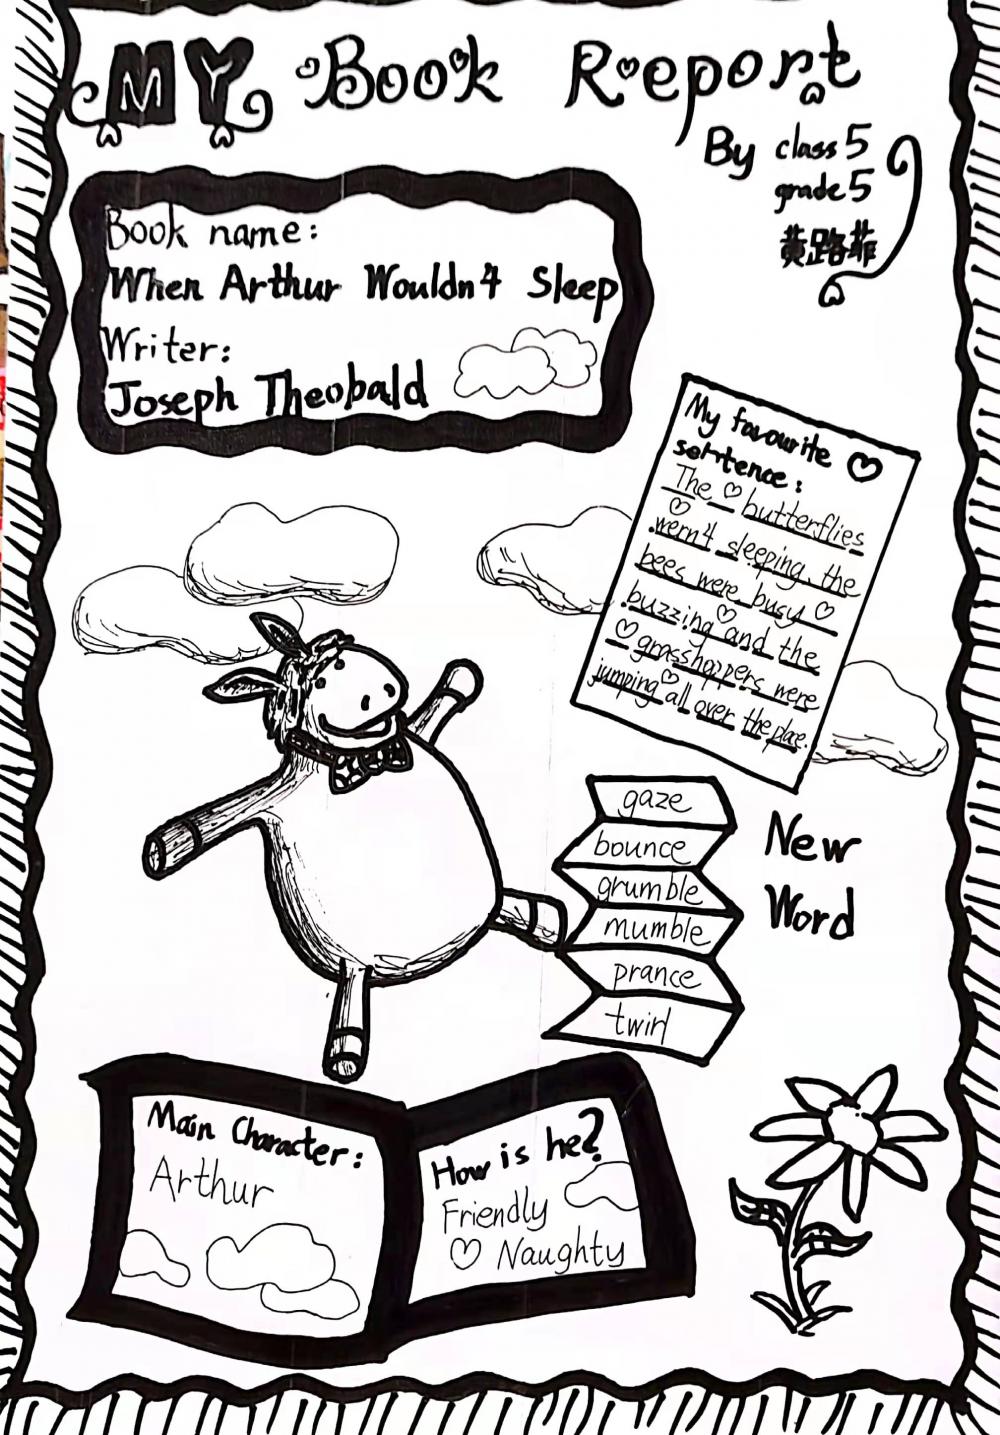 MY Book Report
By class 5
grade 5
黄路菲
Book name:
When Arthur Wouldn't Sleep
Writer:
Joseph Theobald
My favourite
sentence:
The butterflies
wern't sleeping, the
bees were busy
buzzing and the
grasshoppers were
jumping all over the place.
gaze
bounce
grumble
mumble
prance
twirl
New
Word
Main Character:
Arthur
How is he?
Friendly
Naughty